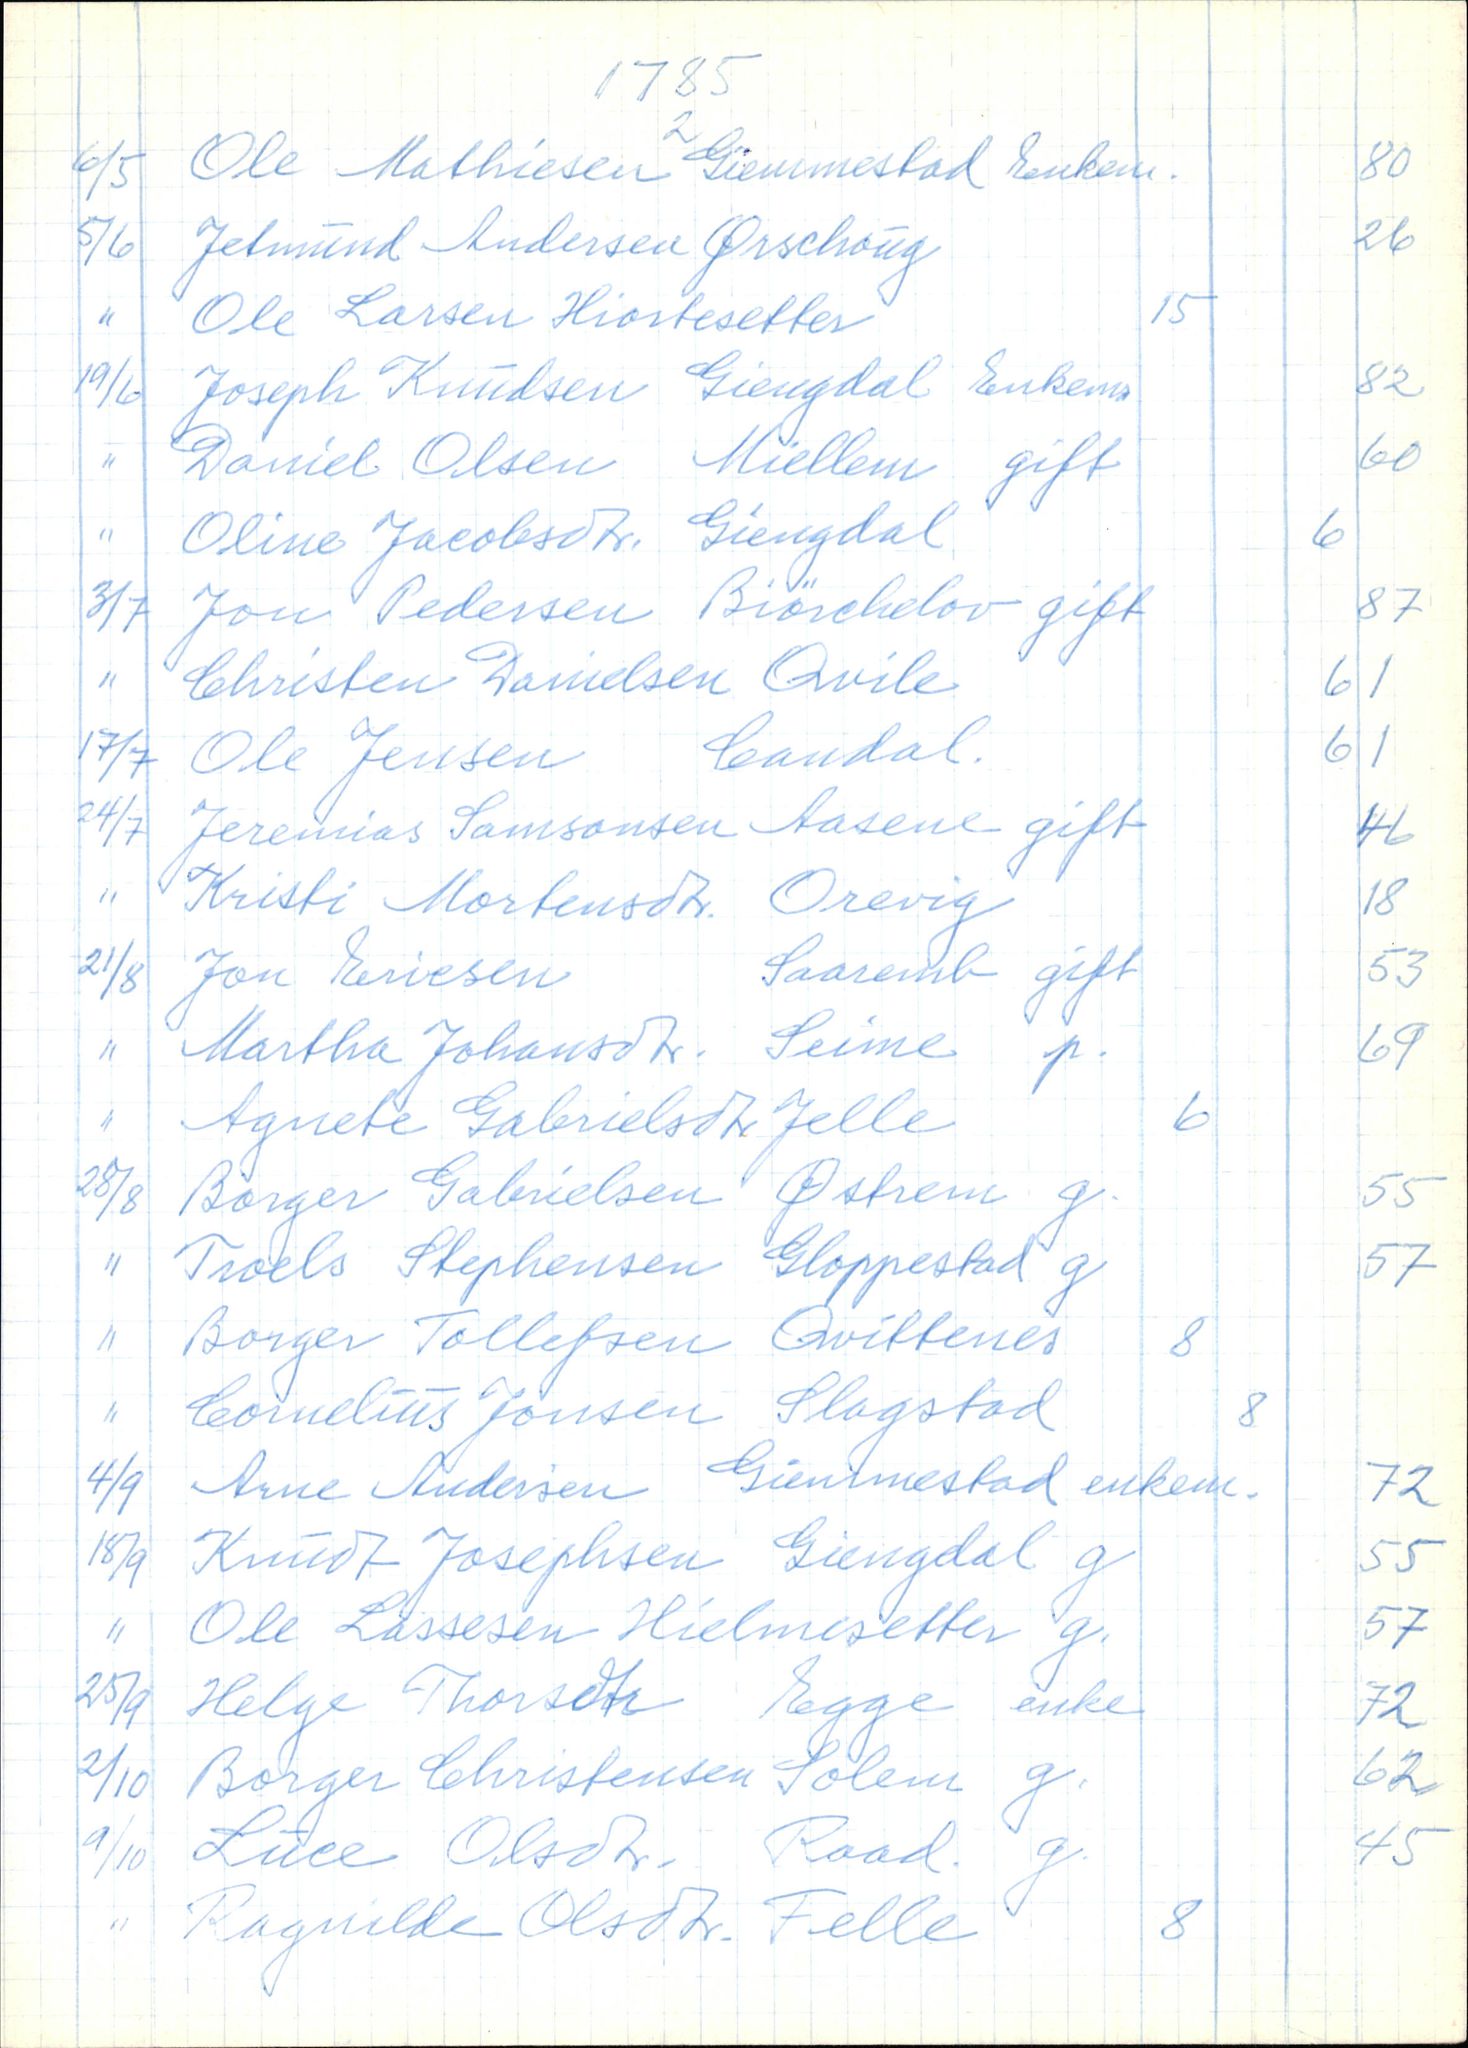 1785
2
6/5 Ole Mathiesen Giemmestad Enkem. 80
5/6 Jetmund Andersen Ørschoug 26
" Ole Larsen Hiortesetter 15
19/6 Joseph Knudsen Giengdal Enkem. 82
" Daniel Olsen Miellem gift 60
" Oline Jacobsdtr. Giengdal 6
3/7 Jon Pedersen Biörchelov gift 87
" Christen Danielsen Qvile 61
17/7 Ole Jensen Candal. 61
24/7 Jeremias Samsonsen Aasene gift 46
" Kristi Mortensdtr. Orevig 18
21/8 Jon Ericsen Saaremb gift 53
" Martha Johansdtr. Seime p. 69
" Agnete Gabrielsdtr. Jelle 6
28/8 Borger Gabrielsen Østrem g. 55
" Troels Stephensen Gloppestad g 57
" Borger Tollefsen Qvittenes 8
" Cornelius Jonsen Slagstad 8
4/9 Arne Andersen Giemmestad enkem. 72
18/9 Knudt Josephsen Giengdal g 55
" Ole Lassesen Hielmesetter g. 57
25/9 Helge Thorsdtr Egge enke 72
2/10 Borger Christensen Solem g. 62
9/10 Luce Olsdtr. Raad. g. 45
" Ragnilde Olsdtr. Felle 8